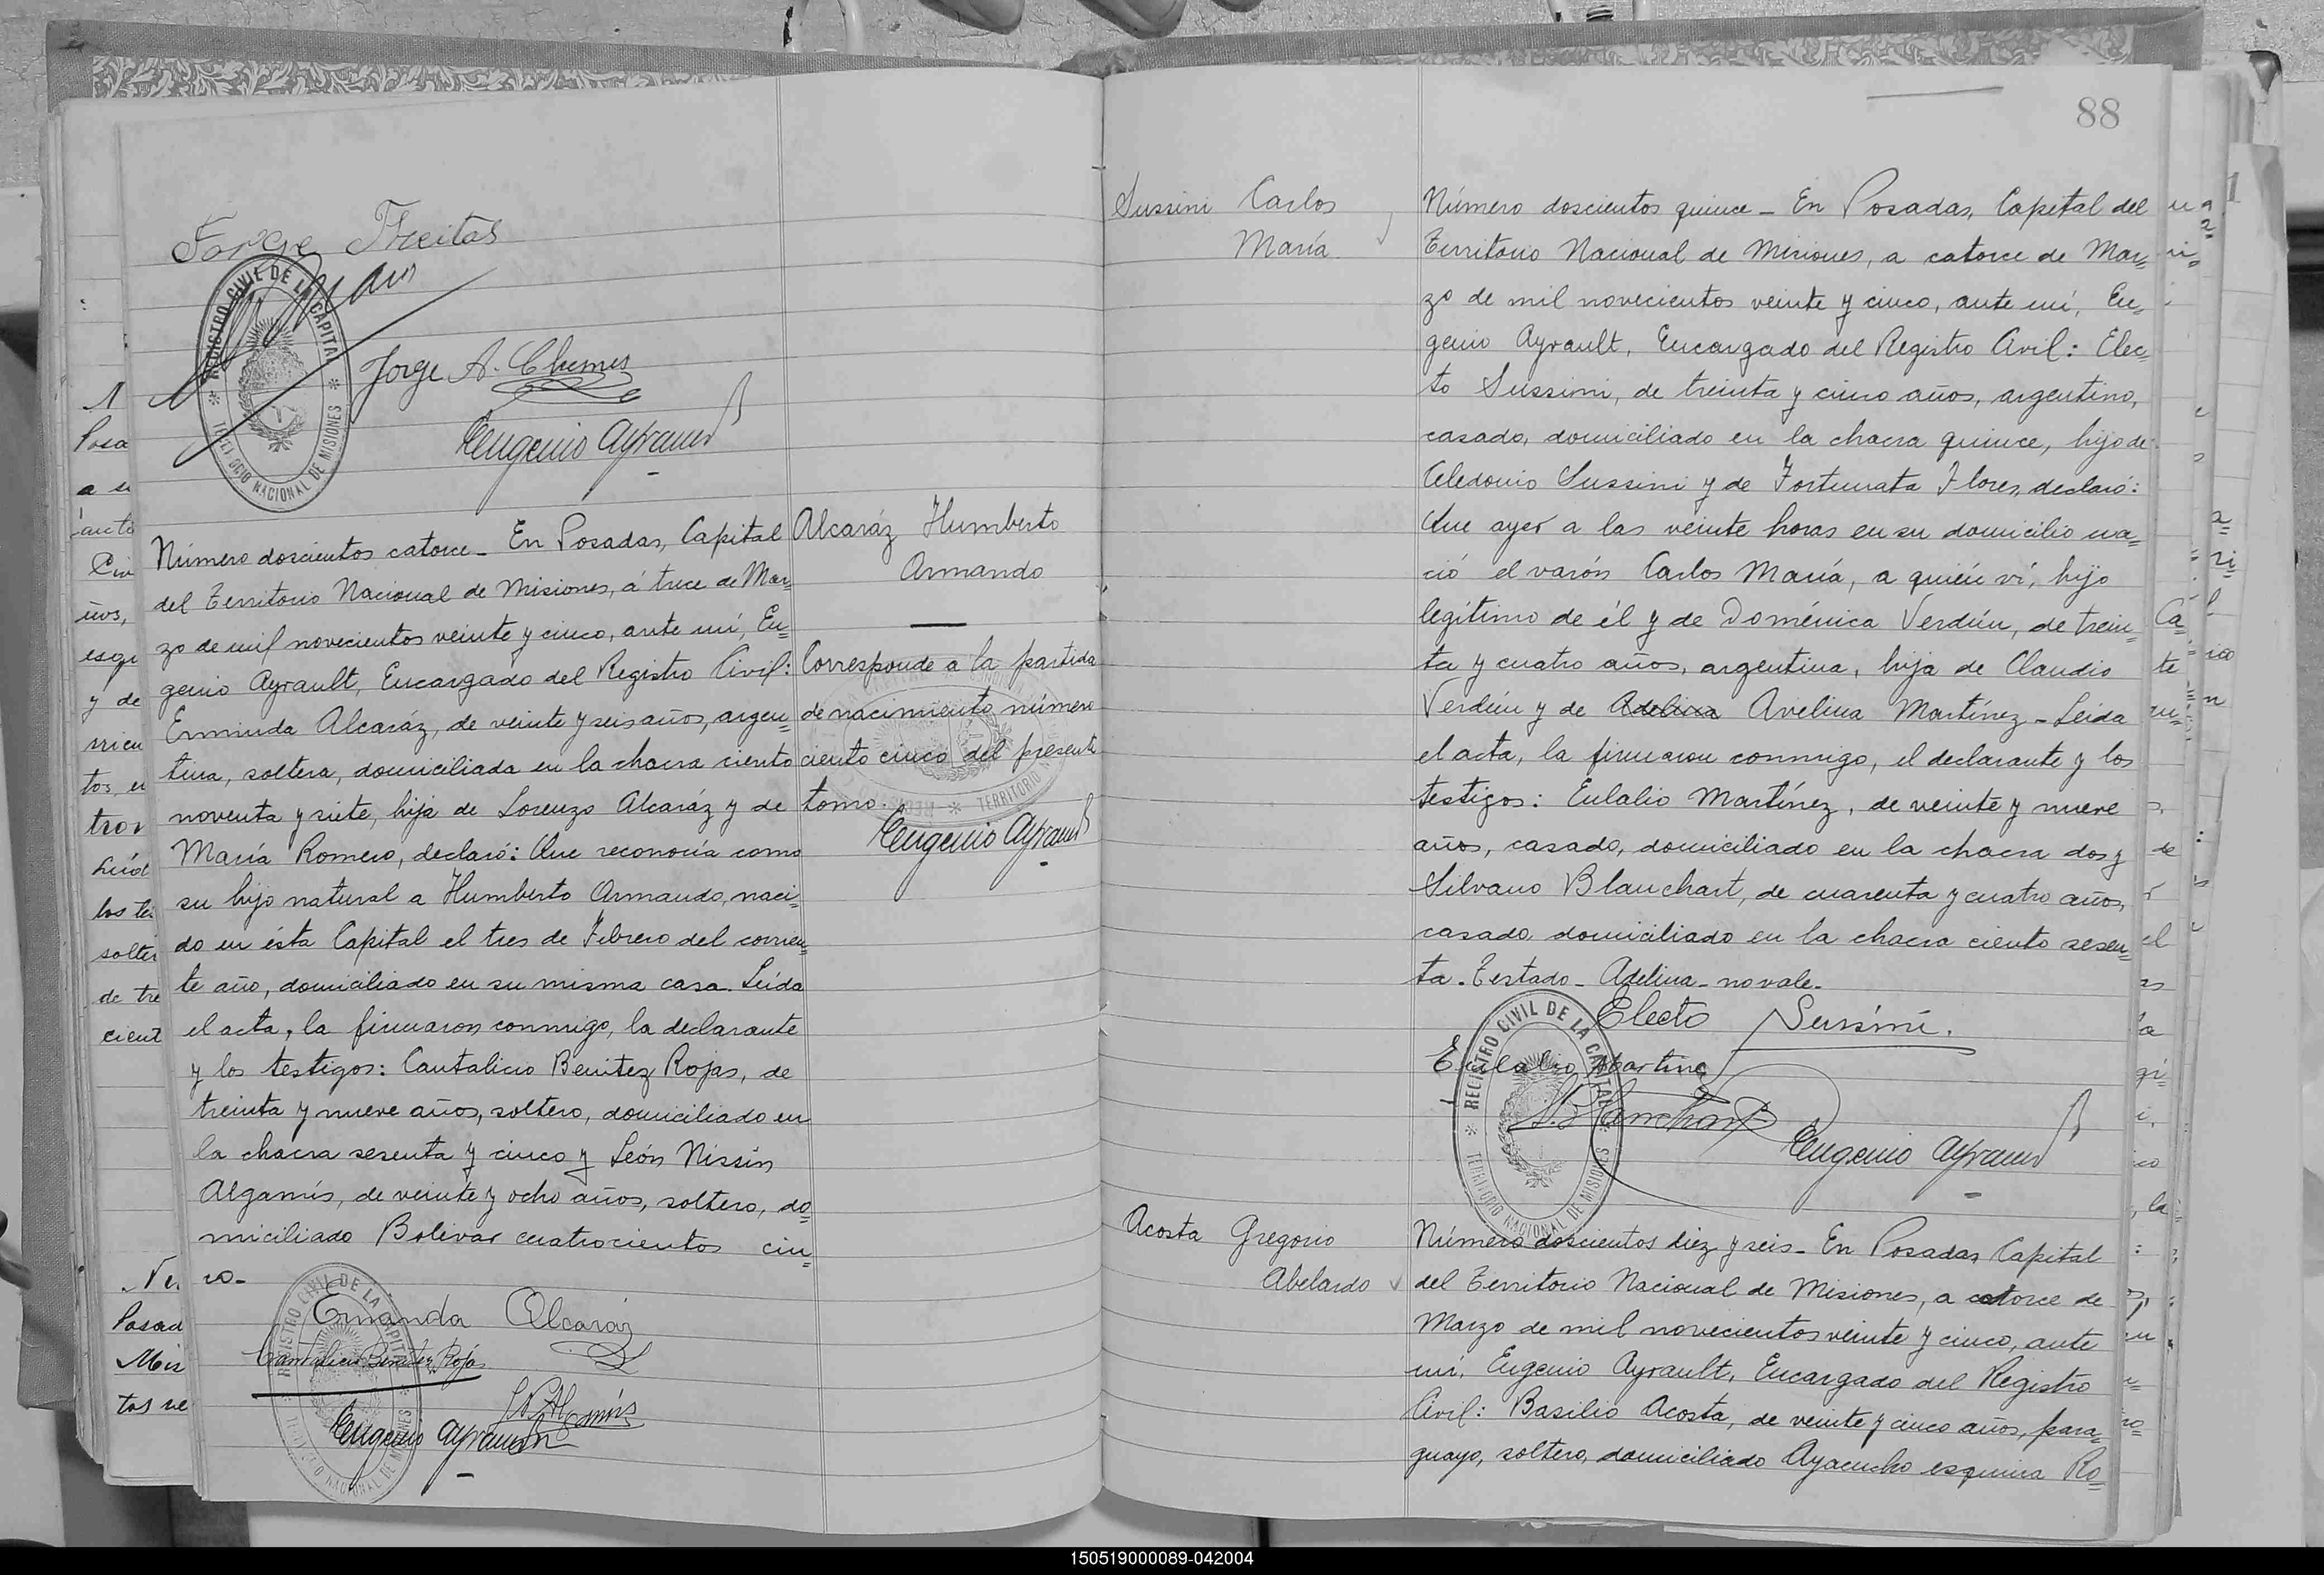 Jorge Freitas
REGISTRO CIVIL DE LA CAPITAL
TERRITORIO NACIONAL DE MISIONES
Jorge A. Chemes
Eugenio Ayrault
Número doscientos catorce_ En Posadas, Capital
del Territorio Nacional de Misiones, á trece de Mar=
zo de mil novecientos veinte y cinco, ante mí, Eu=
genio Ayrault, Encargado del Registro Civil:
Erminda Alcaráz, de veinte y seis años, argen
tina, soltera, domiciliada en la chacra ciento
noventa y siete, hija de Lorenzo Alcaráz y de
María Romero, declaró: Que reconocía como
su hijo natural a Humberto Armando, naci=
do en ésta Capital el tres de Febrero del corrien=
te año, domiciliado en su misma casa. Leída
el acta, la firmaron conmigo, la declarante
y los testigos: Cantalicio Benitez Rojas, de
treinta y nueve años, soltero, domiciliado en
la chacra sesenta y cinco y León Nissin
Algamis, de veinte y ocho años, soltero, do=
miciliado Bolivar cuatrocientos cin=
co_
REGISTRO CIVIL DE LA CAPITAL
TERRITORIO NACIONAL DE MISIONES
Ermanda Alcaráz
Cantalicio Benitez Rojas
L N Algamis
Eugenio Ayrault
Alcaráz Humberto
Armando
Corresponde a la partida
de nacimiento número
ciento cinco del presente
tomo.
Eugenio Ayrault
88
Sussini Carlos
María
Número doscientos quince_ En Posadas, Capital del
Territorio Nacional de Misiones, a catorce de Mar=
zo de mil novecientos veinte y cinco, ante mí, Eu=
genio Ayrault, Encargado del Registro Civil: Elec=
to Sussini, de treinta y cinco años, argentino,
casado, domiciliado en la chacra quince, hijo de
Celedonio Sussini y de Fortunata Flores, declaró:
Que ayer a las veinte horas en su domicilio na=
ció el varón Carlos María, a quién ví, hijo
legítimo de él y de Doménica Verdún, de trein=
ta y cuatro años, argentina, hija de Claudio
Verdún y de Adelina Avelina Martínez_ Leida
el acta, la firmaron conmigo, el declarante y los
testigos: Eulalio Martínez, de veinte y nueve
años, casado, domiciliado en la chacra dos y
Silvano Blanchart, de cuarenta y cuatro años,
casado, domiciliado en la chacra ciento sesen=
ta. Testado_ Adelina_ no vale_
REGISTRO CIVIL DE LA CAPITAL
TERRITORIO NACIONAL DE MISIONES
Electo Sussini.
Eulalio Martinez
S. Blanchart
Eugenio Ayrault
Acosta Gregorio
Abelardo
Número doscientos diez y seis_ En Posadas, Capital
del Territorio Nacional de Misiones, a catorce de
Marzo de mil novecientos veinte y cinco, ante
mí, Eugenio Ayrault, Encargado del Registro
Civil: Basilio Acosta, de veinte y cinco años, para=
guayo, soltero, domiciliado Ayacucho esquina Ro=
150519000089-042004